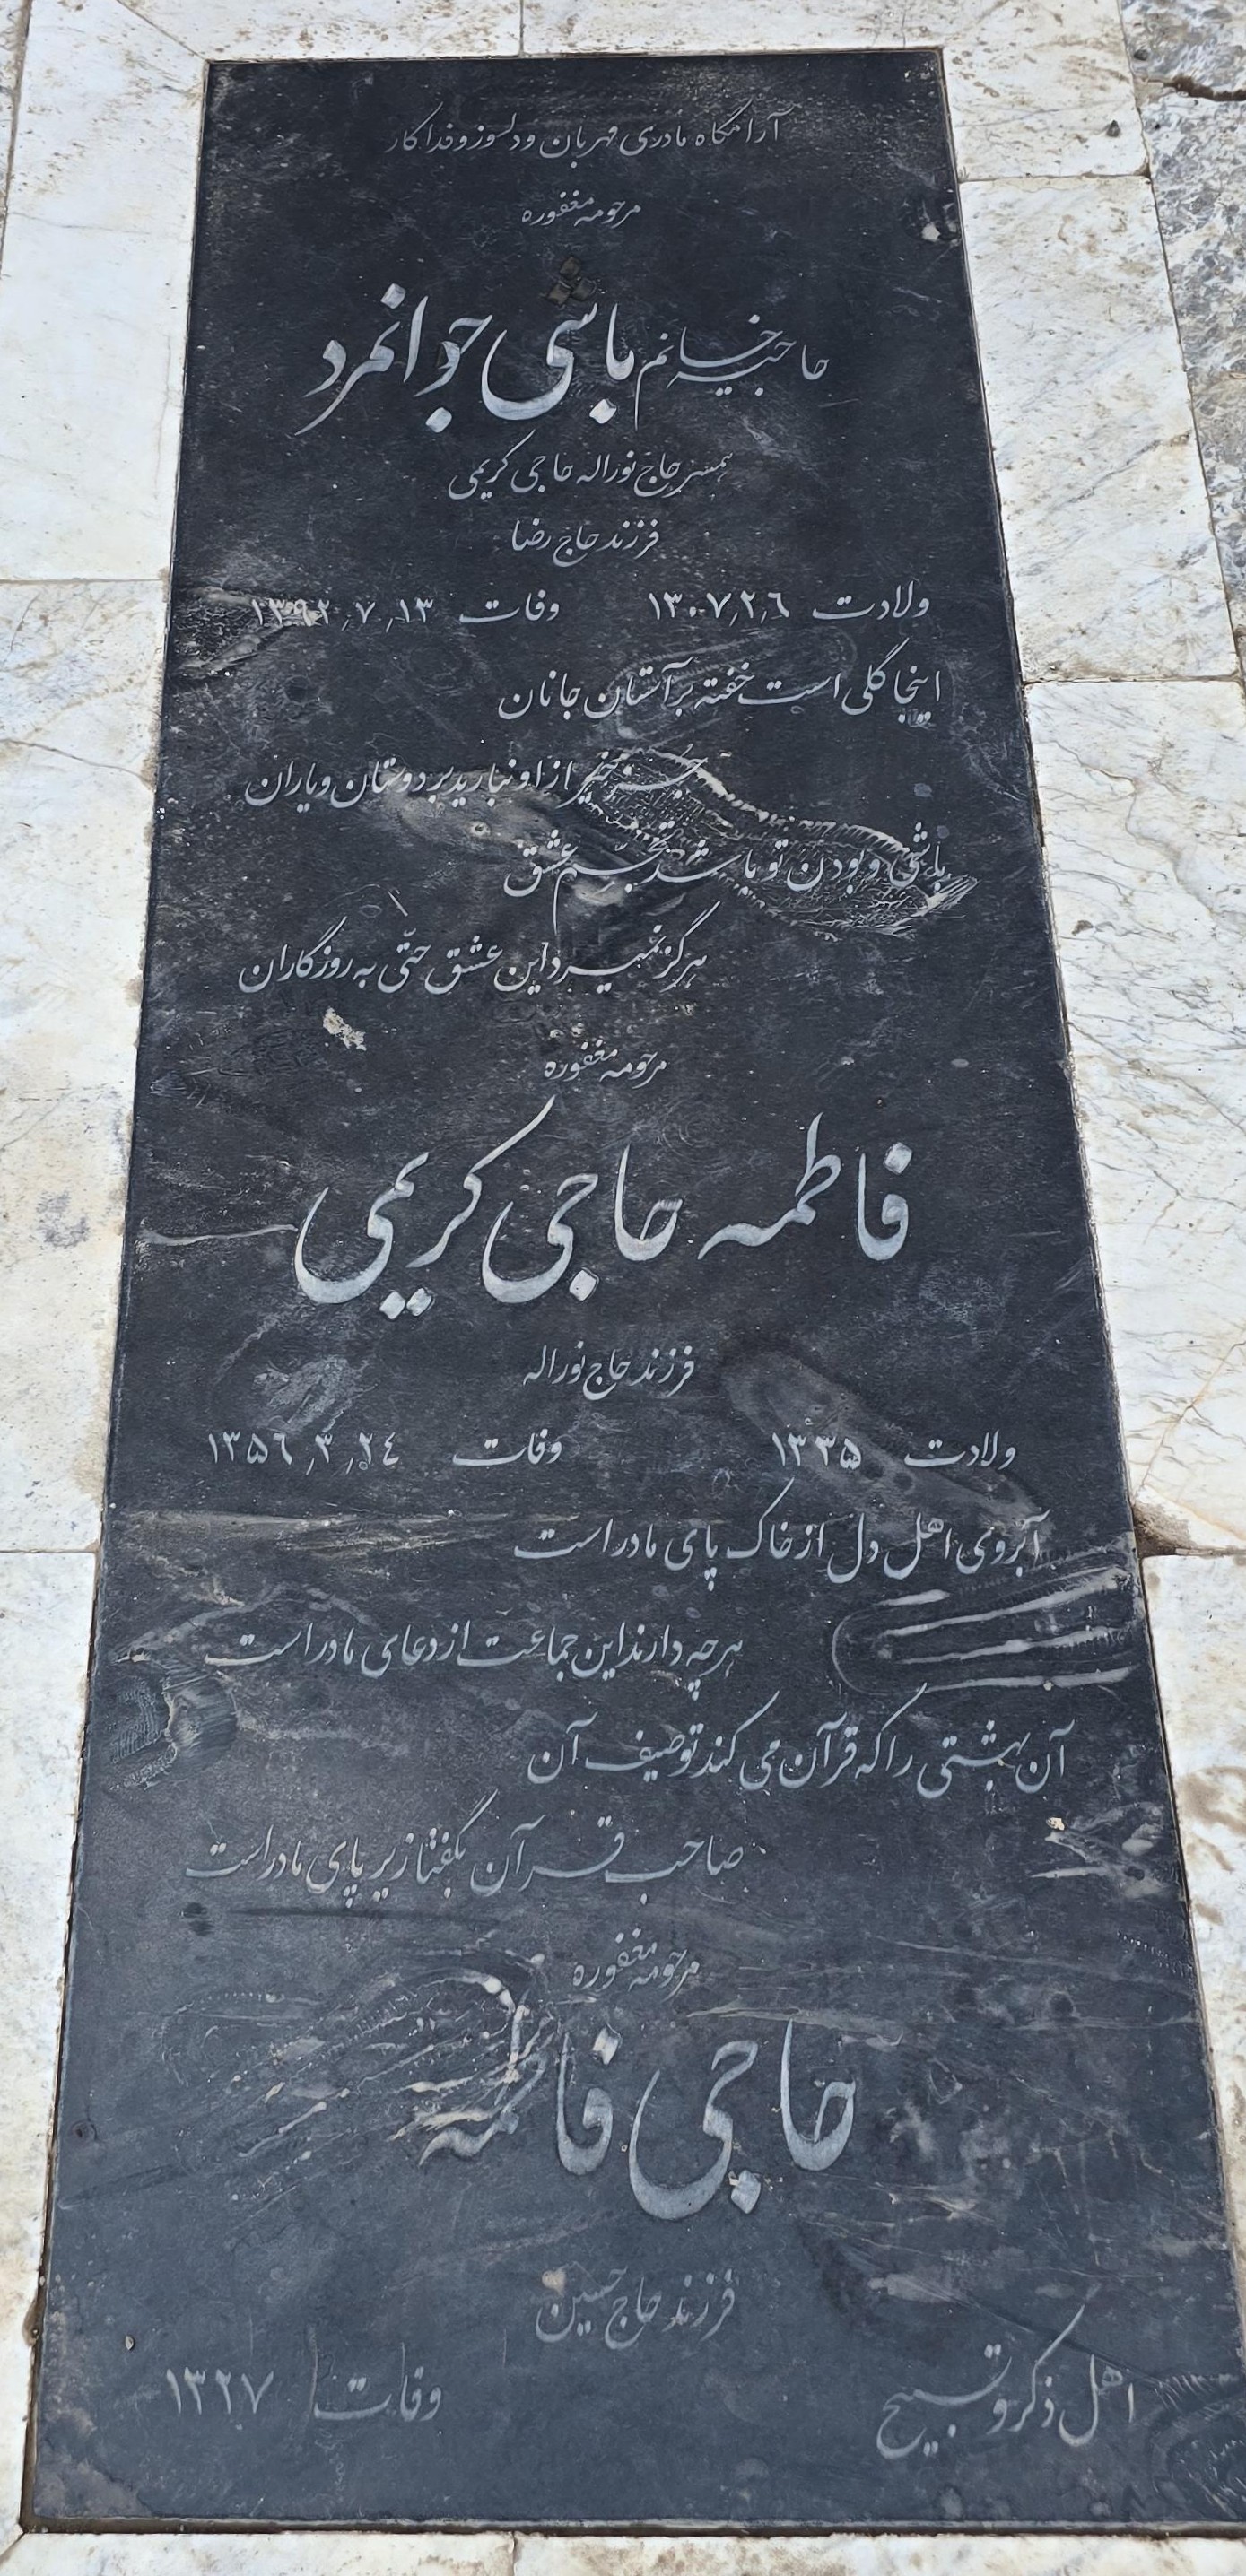 آرامگاه مادری مهربان و دلسوز و فداکار
مرحومه مغفوره
حاجیه خانم باشی جوانمرد
همسر حاج نوراله حاجی کریمی
فرزند حاج رضا
ولادت ۱۳۰۷٫۲٫۶ وفات ۱۳۹۲٫۷٫۱۳
اینجا گلی است خفته بر آستان جانان
جز خیر از او نبارید بر دوستان و یاران
باشی و بودن تو باشد تجسم عشق
هرگز نمیرد این عشق حتّی به روزگاران
مرحومه مغفوره
فاطمه حاجی کریمی
فرزند حاج نوراله
ولادت ۱۳۳۵ وفات ۱۳۵۶٫۳٫۲۴
آبروی اهل دل از خاک پای مادر است
هرچه دارند این جماعت از دعای مادر است
آن بهشتی را که قرآن می کند توصیف آن
صاحب قرآن بگفتا زیر پای مادر است
مرحومه مغفوره
حاجی فاطمه
فرزند حاج حسین
اهل ذکر و تسبیح وفات ۱۳۲۷